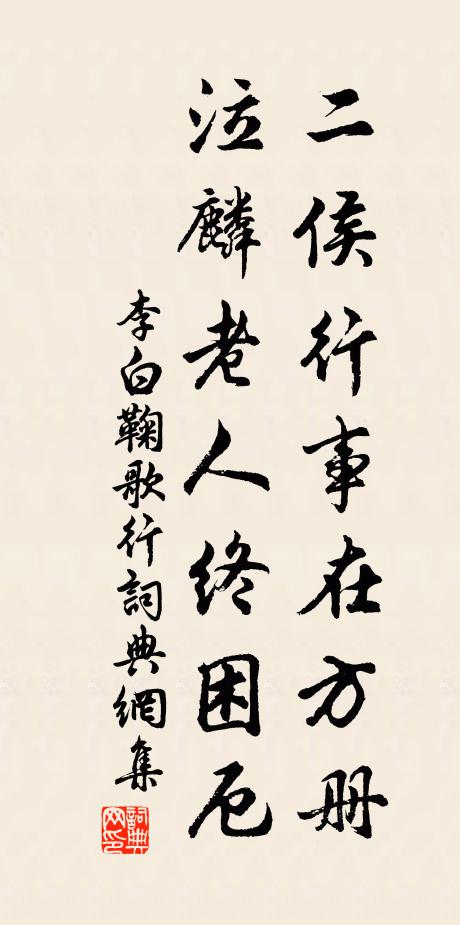 二侯行事在方册
泣麟老人終困厄
李白鞠歌行詞典網集
詞典網印